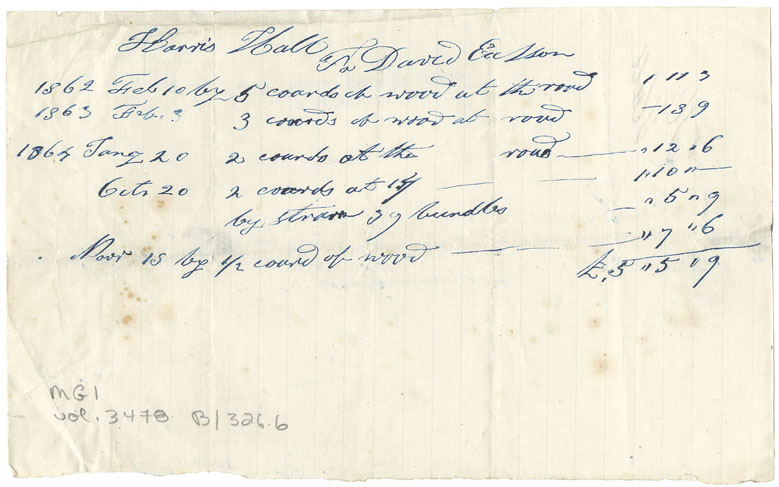 Harris Hall
To David Eatson
1862 Feb 10 by 5 coards of wood at the road 1 " 11 " 3
1863 Feb. 3 3 coards of wood at road - 13 9
1864 Jany 20 2 coards at the road " 12 " 6
Octr 20 2 coards at " 10 "
by straw 39 bundles " 5 " 9
Novr 15 by 1/2 coard of wood " 7 " 6
£. 5 " 5 " 9
MG1
vol. 3478 B/326.6